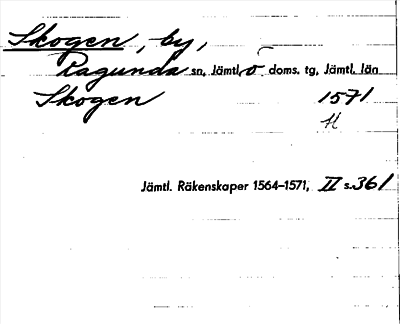 Skogen, by,
Ragunda sn, Jämtl. ö doms. tg, Jämtl. län
Skogen 1571
H
Jämtl. Räkenskaper 1564–1571, II s. 361